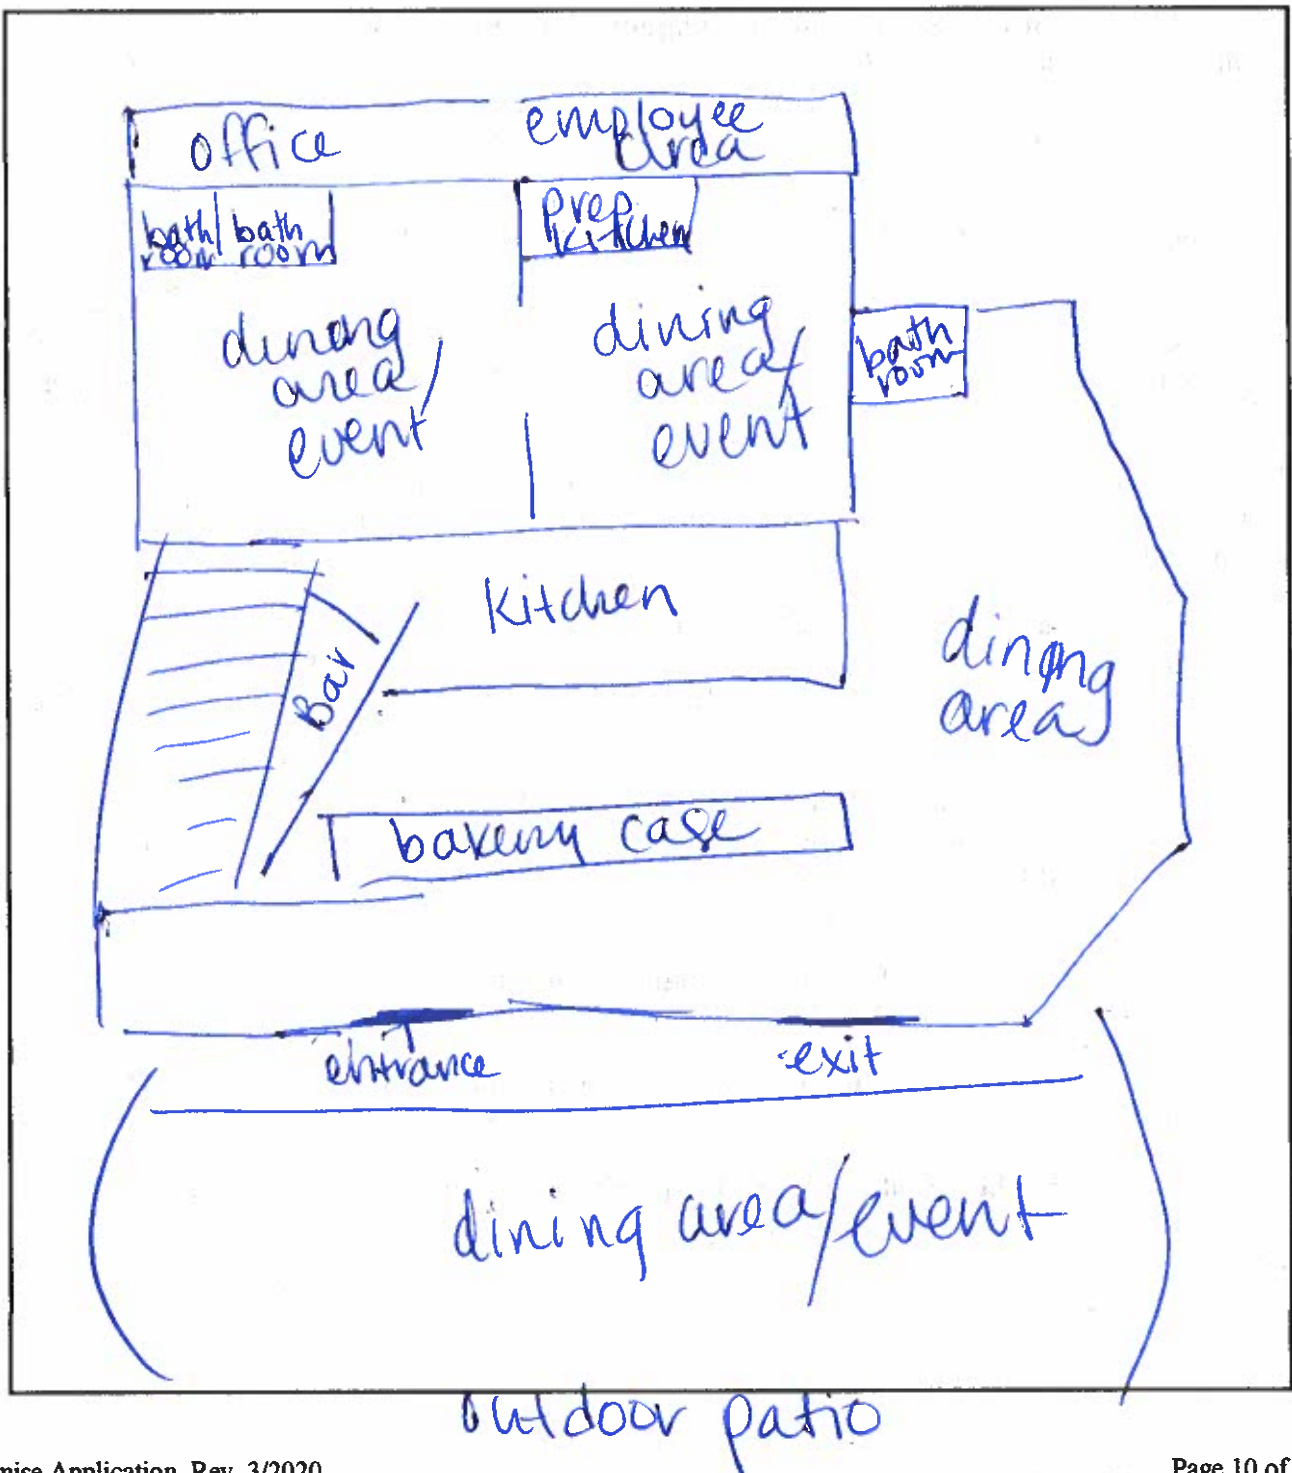 office
employee
area
bath
room
bath
room
prep
kitchen
dining
area/
event
dining
area/
event
bath
room
kitchen
Bar
dining
area
bakery case
entrance
exit
dining area/event
outdoor patio
Application, Rev. 3/2020
Page 10 of